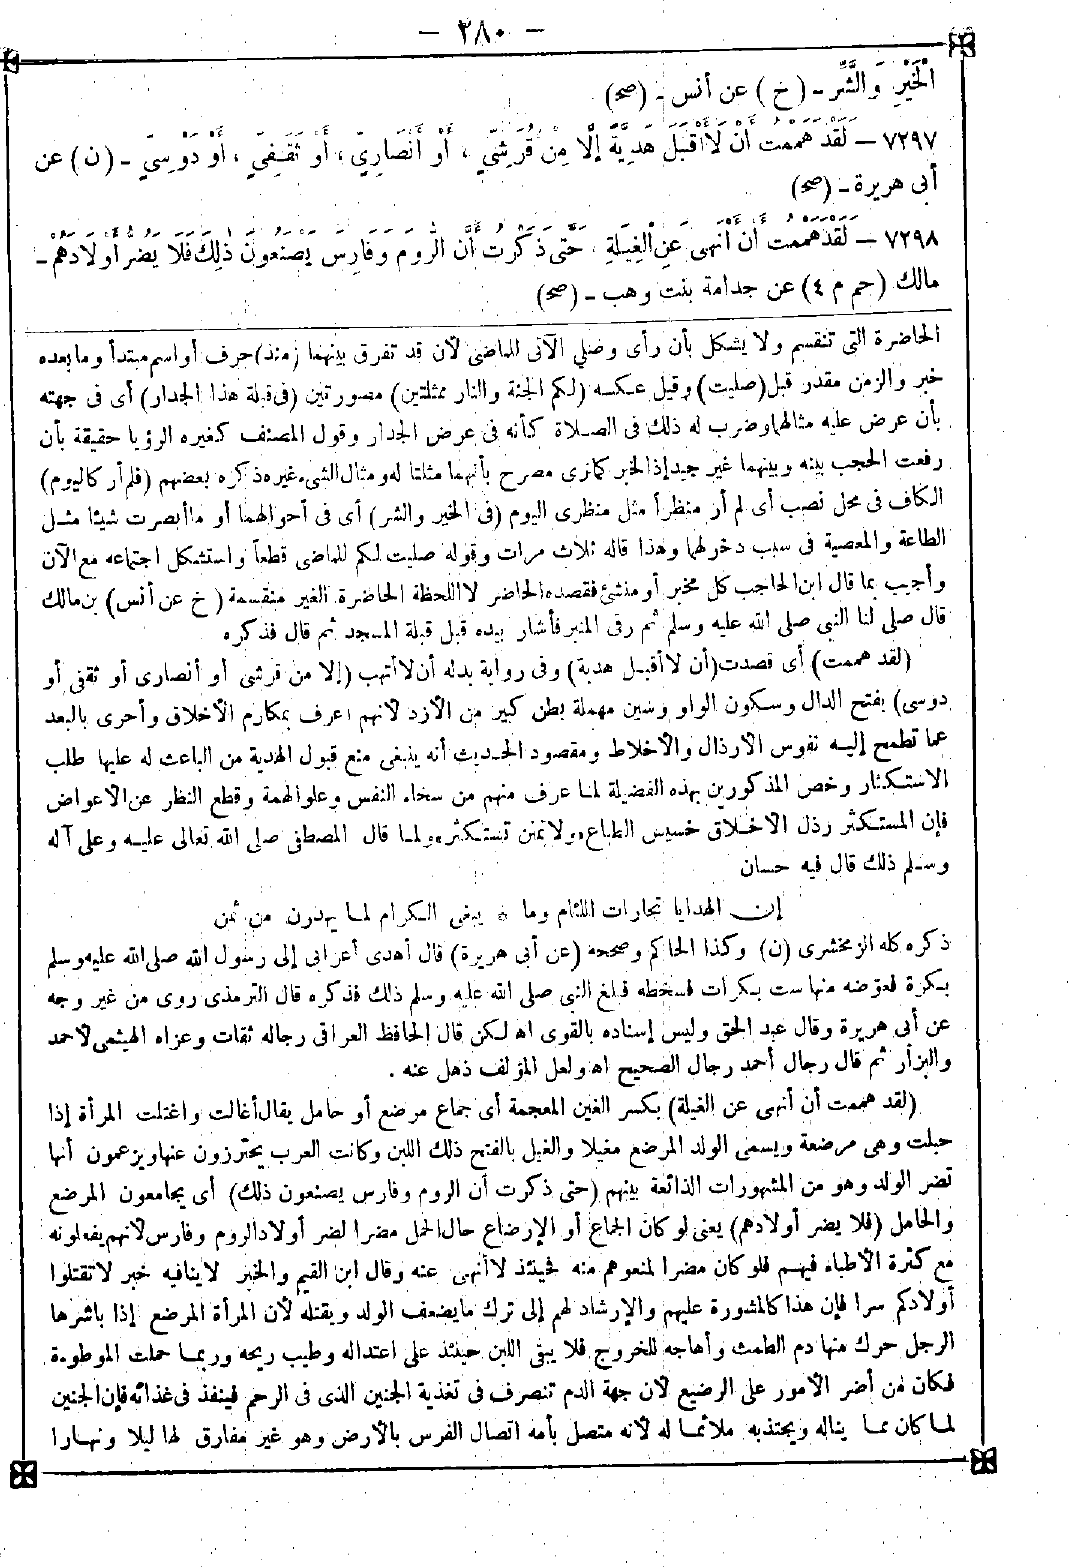 - ٢٨٠ -
الْخَيْرِ وَالشَّرِّ - (خ) عن أنس - (صح)
٧٢٩٧ - لَقَدْ هَمَمْتُ أَنْ لَا أَقْبَلَ هَدِيَّةً إِلَّا مِنْ قُرَشِيٍّ ، أَوْ أَنْصَارِيٍّ ، أَوْ ثَقَفِيٍّ ، أَوْ دَوْسِيٍّ - (ن) عن
أبى هريرة - (صح)
٧٢٩٨ - لَقَدْ هَمَمْتُ أَنْ أَنْهَى عَنِ الْغِيلَةِ ، حَتَّى ذَكَرْتُ أَنَّ الرُّومَ وَفَارِسَ يَصْنَعُونَ ذٰلِكَ فَلَا يَضُرُّ أَوْلَادَهُمْ -
مالك (حم م ٤) عن جدامة بنت وهب - (صح)
الحاضرة التى تنقسم ولا يشكل بأن رأى وصلى الآتى للماضى لأن قد تفرق بينهما (منذ) حرف أو اسم مبتدأ وما بعده
خبر والزمن مقدر قبل (صليت) وقيل عكسه (لكم الجنة والنار ممثلتين) مصورتين (فى قبلة هذا الجدار) أى فى جهته
بأن عرض عليه مثالهما وضرب له ذلك فى الصلاة كأنه فى عرض الجدار وقول المصنف كغيره الرؤيا حقيقة بأن
رفعت الحجب بينه وبينهما غير جيد إذ الخبر كما ترى مصرح بأنهما مثلتا له ومثال الشىء غيره ذكره بعضهم (فلم أر كاليوم)
الكاف فى محل نصب أى لم أر منظرا مثل منظرى اليوم (فى الخير والشر) أى فى أحوالهما أو ما أبصرت شيئا مثل
الطاعة والمعصية فى سبب دخولهما وهذا قاله ثلاث مرات وقوله صليت لكم للماضى قطعاً واستشكل اجتماعه مع الآن
وأجيب بما قال ابن الحاجب كل مخبر أو منشئ فقصده الحاضر لا اللحظة الحاضرة الغير منقسمة (خ عن أنس) بن مالك
قال صلى لنا النبى صلى الله عليه وسلم ثم رقى المنبر فأشار بيده قبل قبلة المسجد ثم قال فذكره
(لقد هممت) أى قصدت (أن لا أقبل هدية) وفى رواية بدله أن لا أتهب (إلا من قرشى أو أنصارى أو ثقفى أو
دوسى) بفتح الدال وسكون الواو وسين مهملة بطن كبير من الأزد لأنهم أعرف بمكارم الأخلاق وأحرى بالبعد
عما تطمح إليه نفوس الأرذال والأخلاط ومقصود الحديث أنه ينبغى منع قبول الهدية من الباعث له عليها طلب
الاستكثار وخص المذكورين بهذه الفضيلة لما عرف منهم من سخاء النفس وعلو الهمة وقطع النظر عن الأعواض
فإن المستكثر رذل الأخلاق خسيس الطباع «ولا تمنن تستكثر» ولما قال المصطفى صلى الله تعالى عليه وعلى آله
وسلم ذلك قال فيه حسان
إن الهدايا تجارات اللئام وما * يبغى الكرام لما يهدون من ثمن
ذكره كله الزمخشرى (ن) وكذا الحاكم وصححه (عن أبى هريرة) قال أهدى أعرابى إلى رسول الله صلى الله عليه وسلم
بكرة فعوضه منها ست بكرات فسخطه فبلغ النبى صلى الله عليه وسلم ذلك فذكره قال الترمذى روى من غير وجه
عن أبى هريرة وقال عبد الحق وليس إسناده بالقوى اه لكن قال الحافظ العراقى رجاله ثقات وعزاه الهيثمى لأحمد
والبزار ثم قال رجال أحمد رجال الصحيح اه ولعل المؤلف ذهل عنه .
(لقد هممت أن أنهى عن الغيلة) بكسر الغين المعجمة أى جماع مرضع أو حامل يقال أغالت واغتلت المرأة إذا
حبلت وهى مرضعة ويسمى الولد المرضع مغيلا والغيل بالفتح ذلك اللبن وكانت العرب يحترزون عنها ويزعمون أنها
تضر الولد وهو من المشهورات الذائعة بينهم (حتى ذكرت أن الروم وفارس يصنعون ذلك) أى يجامعون المرضع
والحامل (فلا يضر أولادهم) يعنى لو كان الجماع أو الإرضاع حال الحمل مضرا لضر أولاد الروم وفارس لأنهم يفعلونه
مع كثرة الأطباء فيهم فلو كان مضرا لمنعوهم منه فحينئذ لا أنهى عنه وقال ابن القيم والخبر لا ينافيه خبر لا تقتلوا
أولادكم سرا فإن هذا كالمشورة عليهم والإرشاد لهم إلى ترك ما يضعف الولد ويقتله لأن المرأة المرضع إذا باشرها
الرجل حرك منها دم الطمث وأهاجه للخروج فلا يبقى اللبن حينئذ على اعتداله وطيب ريحه وربما حملت الموطوءة
فكان من أضر الأمور على الرضيع لأن جهة الدم تنصرف فى تغذية الجنين الذى فى الرحم فينفذ فى غذائه فإن الجنين
لما كان مما يناله ويجتذبه ملائما له لأنه متصل بأمه اتصال الغرس بالأرض وهو غير مفارق لها ليلا ونهارا